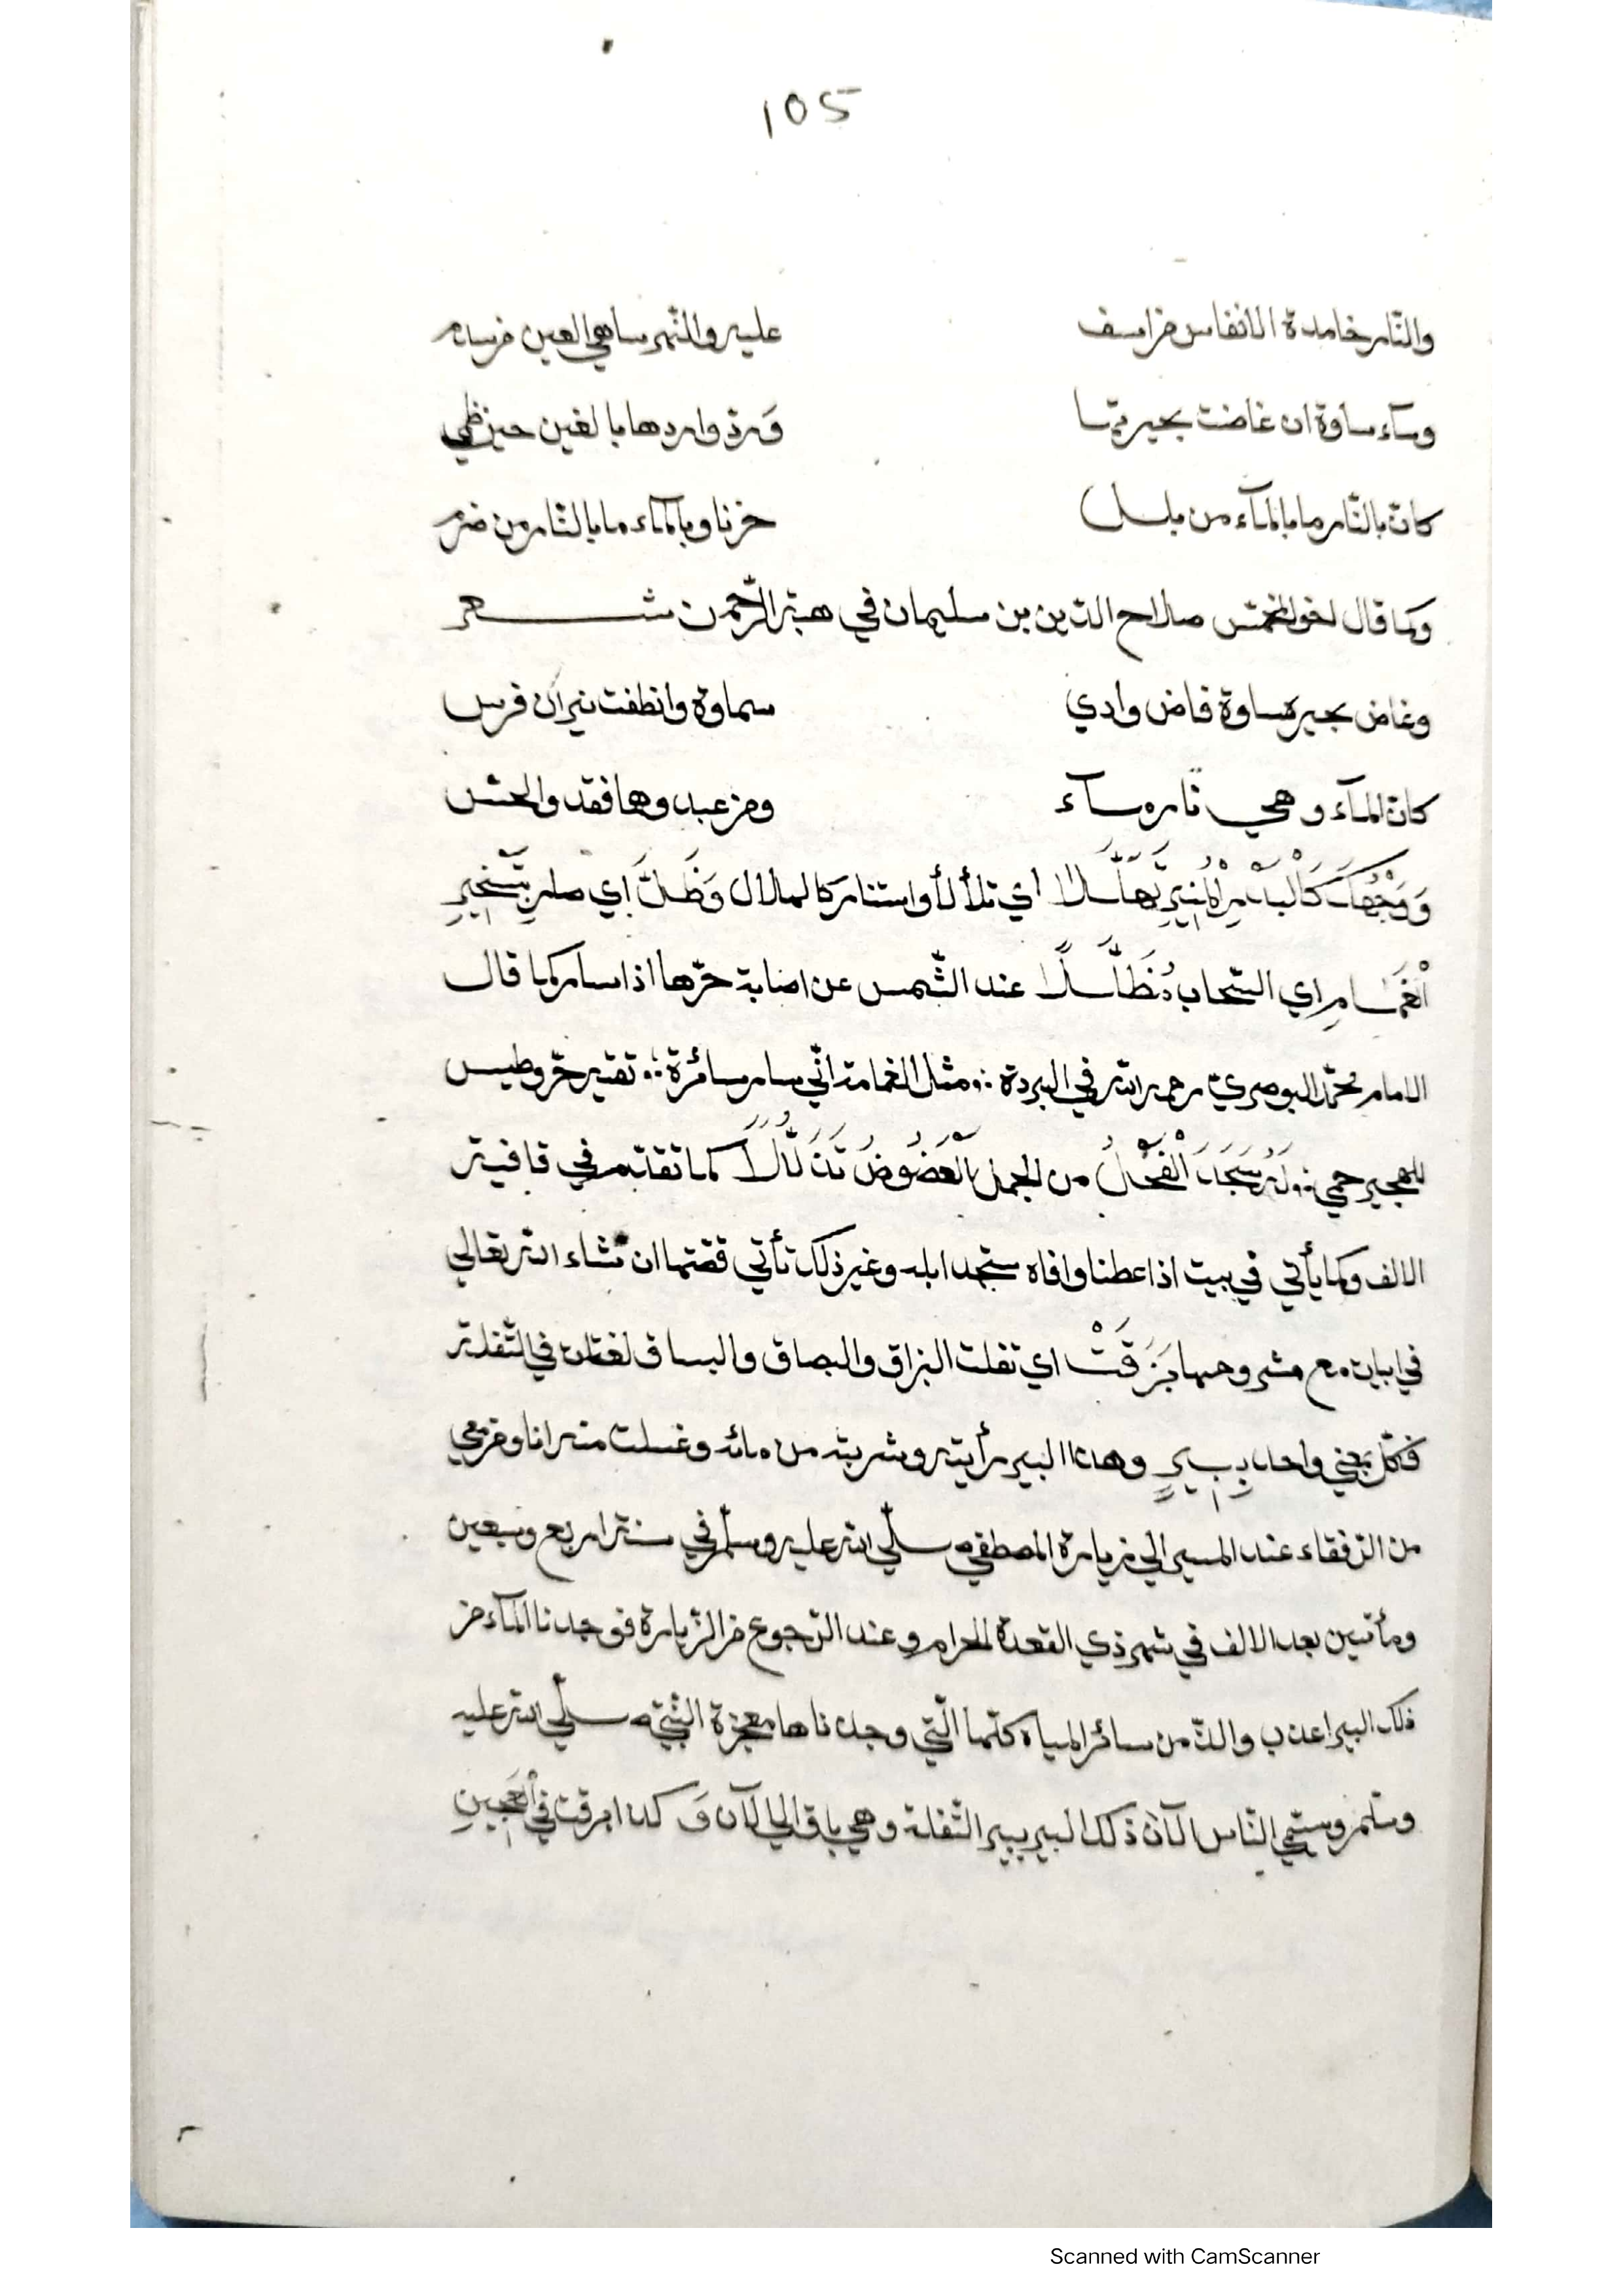 105
والنّار خامدة الانفاس من اسف عليه والنّهر ساهي العين من سدم
وساء ساوة ان غاضت بحيرتها ورد واردها بالغين حين ظمي
كانّ بالنّار ما بالمآء من بلل حزنا وبالمآء ما بالنّار من ضرم
وكما قال صلاح الدّين بن سليمان في هبة الرّحمن شعر
وغاض بحيرة ساوة فاض وادي سماوة وانطفت نيران فرس
كانّ المآء وهي نار مسآء ومن عبدوها فقد والحس
وَوَجْهُكَ كَالْبَدْرِ الْمُنِيرِ تَهَلَّلَا اي تلألأ واستنار كالهلال وَظَلَّ اي صار بِتَسْخِيرِ
الْغَمَامِ اي السّحاب مُظَلَّلًا عند الشّمس عن اصابة حرّها اذا سار كما قال
الامام محمّد البوصري رحمه الله في البردة ∴ مثل الغمامة انّي سار سائرة ∴ تقيه حرّ وطيس
للهجير حمي ∴ لَهُ سَجَدَ الْفَحْلُ من الجمل الْعَضُوضُ تَذَلُّلًا كما تقدّم في قافية
الالف وكما يأتي في بيت اذا عطنا وافاه سجد ابله وغير ذلك تأتي قصّتها ان شاء الله تعالي
في ابيات مع مشروحها بَزَقَتْ اي تفلت البزاق والبصاق والبساق لغتان في التّفلة
فكلّ بمعني واحد بِبِيرٍ وهذا البير رأيته وشربته من مائه وغسلت منه انا ومن معي
من الرّفقاء عند المسير الي زيارة المصطفي صلّي الله عليه وسلّم في سنة اربع وسبعين
ومأتين بعد الالف في شهر ذي القعدة الحرام وعند الرّجوع من الزّيارة فوجدنا المآء من
ذلك البير اعذب والذّ من سائر المياه كلّها الّتي وجدناها معجزة النّبيّ صلّي الله عليه
وسلّم وسمّي النّاس الآن ذلك البير ببير التّفلة وهي باق الي الآن وَكذا بزقت في الْعَجِينِ
Scanned with CamScanner